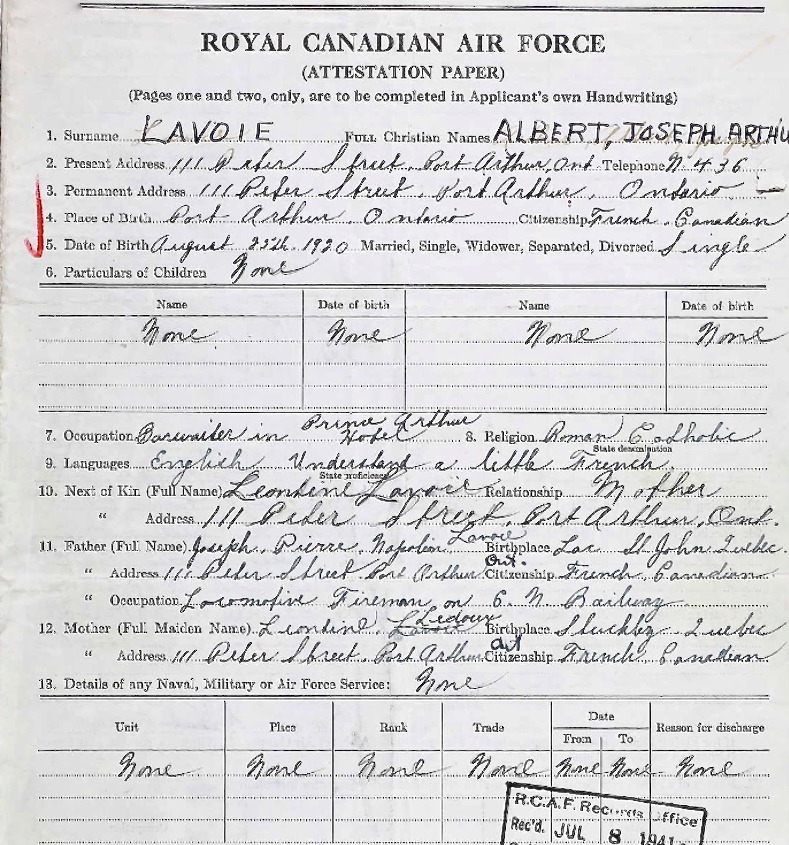 ROYAL CANADIAN AIR FORCE
(ATTESTATION PAPER)
(Pages one and two, only, are to be completed in Applicant's own Handwriting)
1. Surname LAVOIE FULL Christian Names ALBERT, JOSEPH ARTHU
2. Present Address 111 Peter Street, Port Arthur, Ont Telephone N. 436
3. Permanent Address 111 Peter Street, Port Arthur, Ontario
4. Place of Birth Port Arthur, Ontario Citizenship French Canadian
5. Date of Birth August 25th. 1920 Married, Single, Widower, Separated, Divorced Single
6. Particulars of Children None
Name Date of birth Name Date of birth
None None None None
Prince Arthur
7. Occupation Barwaiter in Hotel 8. Religion Roman Catholic
State denomination
9. Languages English Understand a little French
State proficiency
10. Next of Kin (Full Name) Leontine Lavoie Relationship Mother
" Address 111 Peter Street, Port Arthur, Ont.
11. Father (Full Name) Joseph Pierre Napoleon Lavoie Birthplace Lac St John Quebec
" Address 111 Peter Street Port Arthur Ont. Citizenship French Canadian
" Occupation Locomotive Fireman on C. N Railway
12. Mother (Full Maiden Name) Leontine Lavoie Ledoux Birthplace Quebec
" Address 111 Peter Street, Port Arthur Ont Citizenship French Canadian
13. Details of any Naval, Military or Air Force Service: None
Unit Place Rank Trade Date Reason for discharge
From To
None None None None None None None
R.C.A.F. Records Office
Rec'd. JUL 8 1941